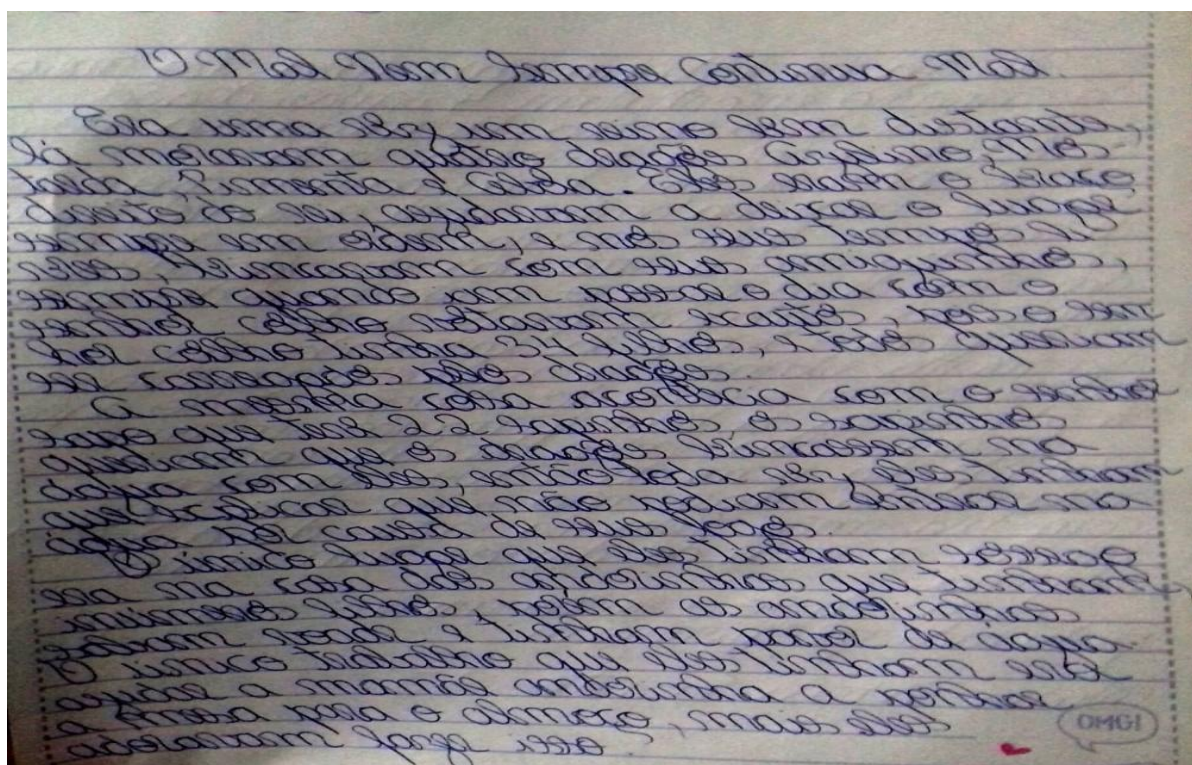 O Mal Nem Sempre Continua Mal.
Era uma vez um reino bem distante,
lá moravam quatro dragões Mos-
tarda Pimenta e . Eles eram o braço
direito do rei, ajudavam a deixar o lugar
sempre em ordem, e nos seus tempos li
vres, brincavam com seus amiguinhos,
sempre quando iam passar o dia com o
senhor coelho voltavam exaustos, pois o sen
hor coelho tinha 34 filhos, e todos queriam
ser pelos dragões.
A mesma coisa acontecia com o senhor
sapo que teve 22 sapinhos, os sapinhos
queriam que os dragões brincassem na
água com eles, então toda vez, eles tinham
que explicar que não podiam entrar na
água por causa de seus fogos.
O único lugar que eles tinham sossego
era na casa das andorinhas que tinham,
inúmeros filhos, porém as andorinhas
voar e tinham pavor de água.
O único trabalho que eles tinham era
ajudar a mamãe andorinha a
a mesa para o almoço, mais eles
adoravam fazer isso.
OMG!